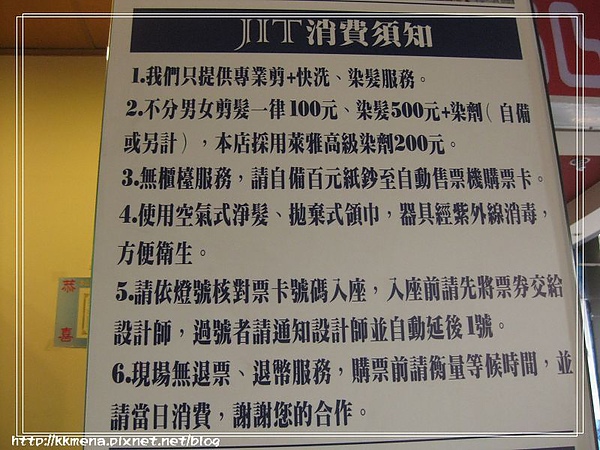 JIT消費須知
1.我們只提供專業剪+快洗、染髮服務。
2.不分男女剪髮一律100元、染髮500元+染劑(自備
或另計),本店採用萊雅高級染劑200元。
3.無櫃檯服務,請自備百元紙鈔至自動售票機購票卡。
4.使用空氣式淨髮、拋棄式領巾,器具經紫外線消毒,
方便衛生。
5.請依燈號核對票卡號碼入座,入座前請先將票券交給
設計師,過號者請通知設計師並自動延後1號。
6.現場無退票、退幣服務,購票前請衡量等候時間,並
請當日消費,謝謝您的合作。
恭
喜
http://kkmena.pixnet.net/blog